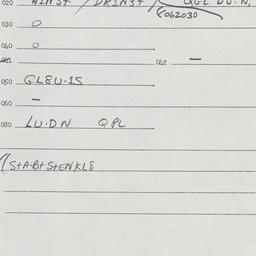 020 HINST / DRINST / QGL DU.N,
062030
030 0
040 0
041 042 —
050 GLBU.1S
060 —
080 LU.DN QPL
(StABtStENKL8